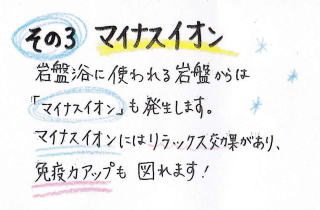 その3 マイナスイオン
岩盤浴に使われる岩盤からは
「マイナスイオン」も発生します。
マイナスイオンにはリラックス効果があり、
免疫力アップも図れます!